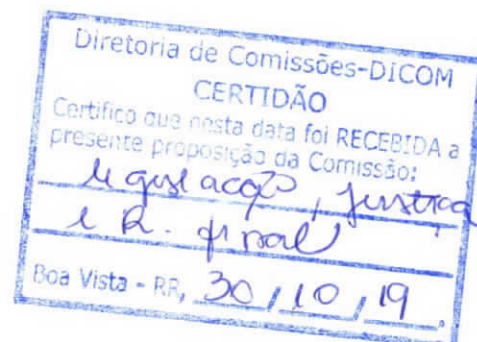 Diretoria de Comissões-DICOM
CERTIDÃO
Certifico que nesta data foi RECEBIDA a
presente proposição da Comissão:
legislação, justiça
e R. final
Boa Vista - RR, 30 / 10 / 19.